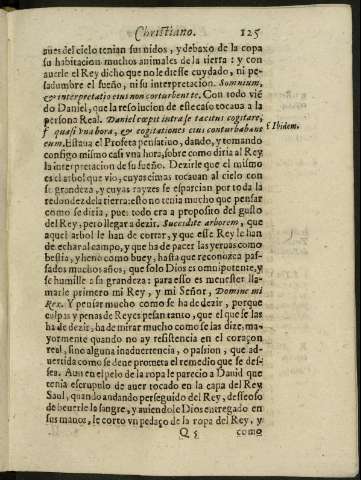 Christiano. 125
aues del cielo tenian sus nidos, y debaxo de la copa
su habitacion muchos animales de la tierra: y con
auerle el Rey dicho que no le diesse cuydado, ni pe-
sadumbre el sueño, ni su interpretacion. Somnium,
& interpretatio eius non conturbent te. Con todo viẽ
do Daniel, que la resolucion de este caso tocaua a la
persona Real. Daniel cœpit intra se tacitus cogitare,
f quasi vna hora, & cogitationes eius conturbabant
f Ibidem.
eum. Estaua el Profeta pensatiuo, dando, y tomando
consigo mismo casi vna hora, sobre como diria al Rey
la interpretacion de su sueño. Dezirle que el mismo
es el arbol que vio, cuyas cimas tocauan al cielo con
su grandeza, y cuyas rayzes se esparcian por toda la
redondez de la tierra: esto no tenia mucho que pensar
como se diria, pues todo era a proposito del gusto
del Rey, pero llegar a dezir. Succidite arborem, que
aquel arbol se han de cortar, y que esse Rey le han
de echar al campo, y que ha de pacer las yeruas como
bestia, y heno como buey, hasta que reconozca pas-
sados muchos años, que solo Dios es omnipotente, y
se humille a su grandeza: para esso es menester lla-
marle primero mi Rey, y mi Señor, Domine mi
Rex. Y pensar mucho como se ha de dezir, porque
culpas y penas de Reyes pesan tanto, que el que se las
ha de dezir, ha de mirar mucho como se las dize, ma-
yormente quando no ay resistencia en el coraçon
real, sino alguna inaduertencia, o passion, que ad-
uertida como se deue prometa el remedio que se des-
sea. Aun en el pelo de la ropa le parecio a Dauid que
tenia escrupulo de auer tocado en la capa del Rey
Saul, quando andando perseguido del Rey, desseoso
de beuerle la sangre, y auiendole Dios entregado en
sus manos, le corto vn pedaço de la ropa del Rey, y
Q 5 como